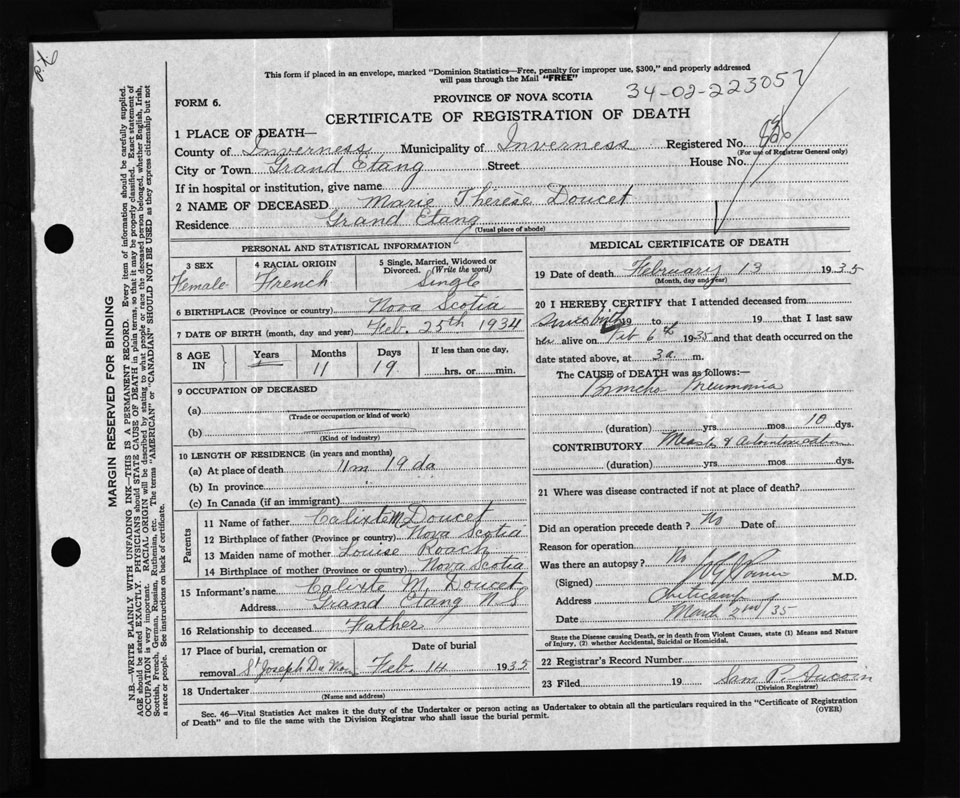 This form if placed in an envelope, marked "Dominion Statistics—Free, penalty for improper use, $300," and properly addressed
will pass through the Mail "FREE"
34-02-223057
PROVINCE OF NOVA SCOTIA
FORM 6.
CERTIFICATE OF REGISTRATION OF DEATH
1 PLACE OF DEATH—
Registered No.
County of Inverness Municipality of Inverness
(For use of Registrar General only)
City or Town Grand Etang Street House No.
If in hospital or institution, give name
2 NAME OF DECEASED Marie Thérèse Doucet
Residence Grand Etang
(Usual place of abode)
PERSONAL AND STATISTICAL INFORMATION
3 SEX 4 RACIAL ORIGIN 5 Single, Married, Widowed or
Divorced. (Write the word)
Female French Single
6 BIRTHPLACE (Province or country) Nova Scotia
7 DATE OF BIRTH (month, day and year) Feb. 25th 1934
8 AGE IN Years Months Days If less than one day,
11 19 hrs. or min.
9 OCCUPATION OF DECEASED
(a)
(Trade or occupation or kind of work)
(b)
(Kind of industry)
10 LENGTH OF RESIDENCE (in years and months)
(a) At place of death 11m 19 da
(b) In province " "
(c) In Canada (if an immigrant)
Parents
11 Name of father Calixte M Doucet
12 Birthplace of father (Province or country) Nova Scotia
13 Maiden name of mother Louise Roach
14 Birthplace of mother (Province or country) Nova Scotia
15 Informant's name Calixte M. Doucet
Address Grand Etang N.S
16 Relationship to deceased Father
17 Place of burial, cremation or Date of burial
removal St Joseph Du Moine Feb. 14 1935
18 Undertaker
(Name and address)
MEDICAL CERTIFICATE OF DEATH
19 Date of death February 13 1935
(Month, day and year)
20 I HEREBY CERTIFY that I attended deceased from
since birth 19 to 19 that I last saw
her alive on Feb 6th 1935 and that death occurred on the
date stated above, at 3a m.
The CAUSE of DEATH was as follows:—
Broncho Pneumonia
(duration) yrs. mos. 10 dys.
CONTRIBUTORY
(duration) yrs. mos. dys.
21 Where was disease contracted if not at place of death?
Did an operation precede death? No Date of
Reason for operation
Was there an autopsy? No
(Signed) M.D.
Address Cheticamp
Date March 2nd/35
State the Disease causing Death, or in death from Violent Causes, state (1) Means and Nature
of Injury, (2) whether Accidental, Suicidal or Homicidal.
22 Registrar's Record Number
23 Filed 19 Sam P. Aucoin
(Division Registrar)
Sec. 46—Vital Statistics Act makes it the duty of the Undertaker or person acting as Undertaker to obtain all the particulars required in the "Certificate of Registration
of Death" and to file the same with the Division Registrar who shall issue the burial permit.
(OVER)
MARGIN RESERVED FOR BINDING
N.B.—WRITE PLAINLY WITH UNFADING INK—THIS IS A PERMANENT RECORD. Every item of information should be carefully supplied.
AGE should be stated EXACTLY. PHYSICIANS should STATE CAUSE OF DEATH in plain terms, so that it may be properly classified. Exact statement of
OCCUPATION is very important. RACIAL ORIGIN will be described by stating to what people or race the deceased person belonged, whether English, Irish,
Scottish, French, German, Russian, Ruthenian, etc. The terms "AMERICAN" or "CANADIAN" SHOULD NOT BE USED as they express citizenship but not
a race or people. See instructions on back of certificate.